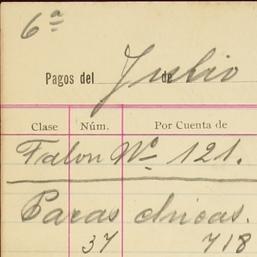 6ª
Pagos del Julio de
Clase Núm. Por Cuenta de
Talon Nº 121.
Casas chicas.
37 718